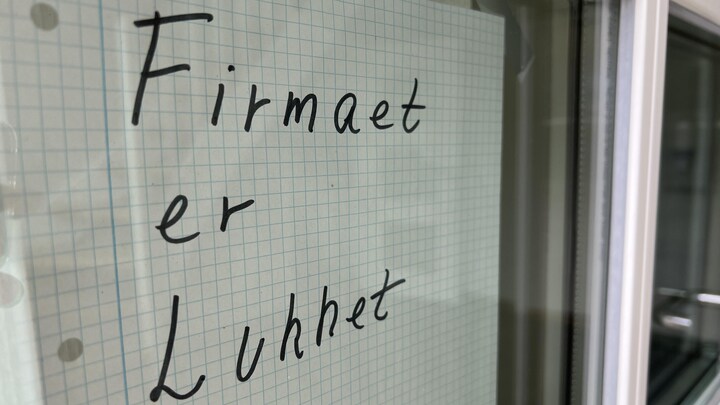 Firmaet
er
Luhhet